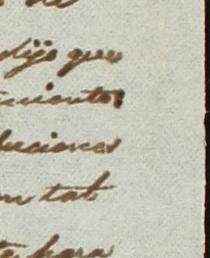 dijo que
mientos
luciones
n tal
para